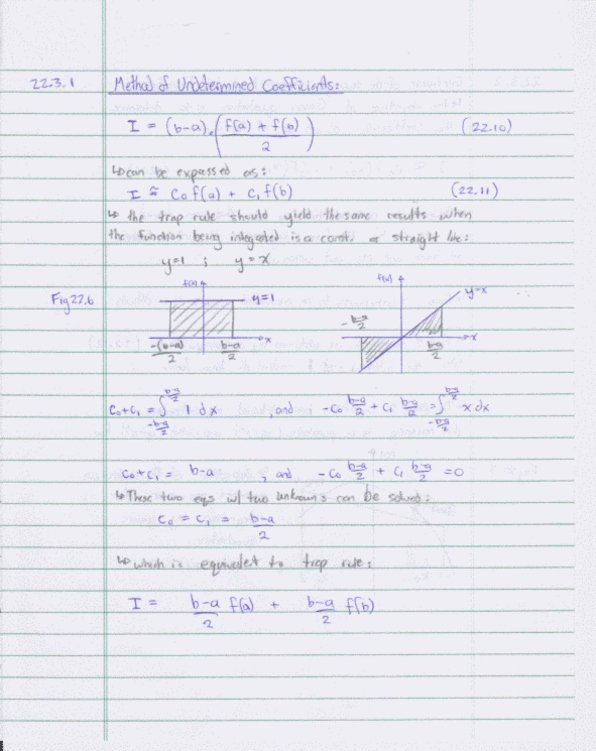 22.3.1 Method of Undetermined Coefficients:
I = (b-a) . ( f(a) + f(b) / 2 ) (22.10)
↳ can be expassed as:
I ≅ C₀ f(a) + C₁ f(b) (22.11)
↳ the trap rule should yield the same results when
the function being integrated is a const. or straight line:
y=1 ; y=x
Fig 22.6
f(x) y=1 x -(b-a)/2 b-a/2
f(x) y=x x -b-a/2 b-a/2
C₀+C₁ = ∫_{-b-a/2}^{b-a/2} 1 dx , and -C₀ b-a/2 + C₁ b-a/2 = ∫_{-b-a/2}^{b-a/2} x dx
C₀+C₁ = b-a , and -C₀ b-a/2 + C₁ b-a/2 = 0
↳ These two eqs w/ two unknowns can be solved:
C₀ = C₁ = b-a/2
↳ which is equivalent to trap rule:
I = b-a/2 f(a) + b-a/2 f(b)